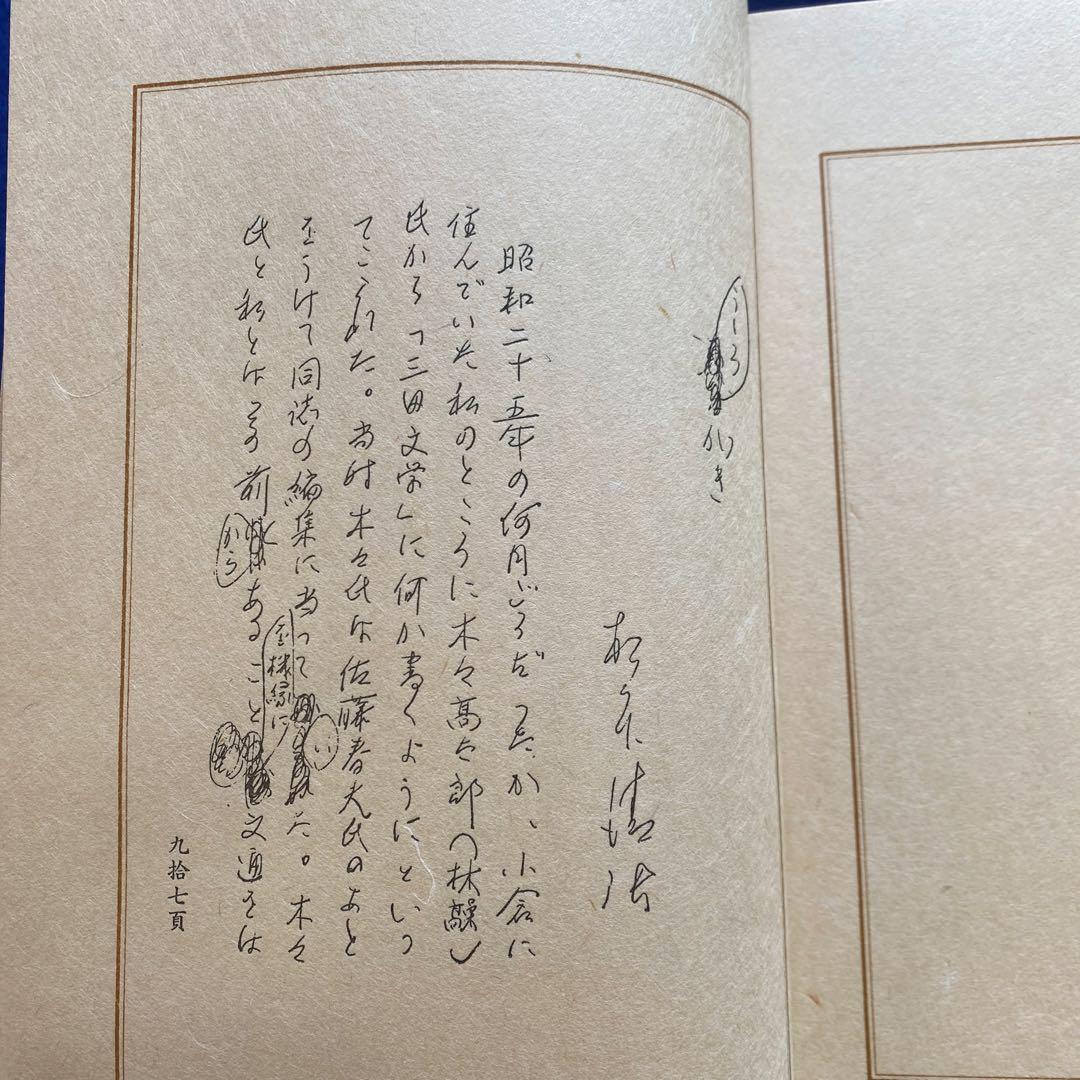 うしろがき
松本清張
昭和二十五年の何月ごろだったか、小倉に
住んでいた私のところに木々高太郎(林髞)
氏から「三田文学」に何か書くようにといっ
てこられた。当時木々氏は佐藤春夫氏のあと
をうけて同誌の編集に当っていた。木々
氏と私とはその前からあることを機縁に文通をは
九拾七頁